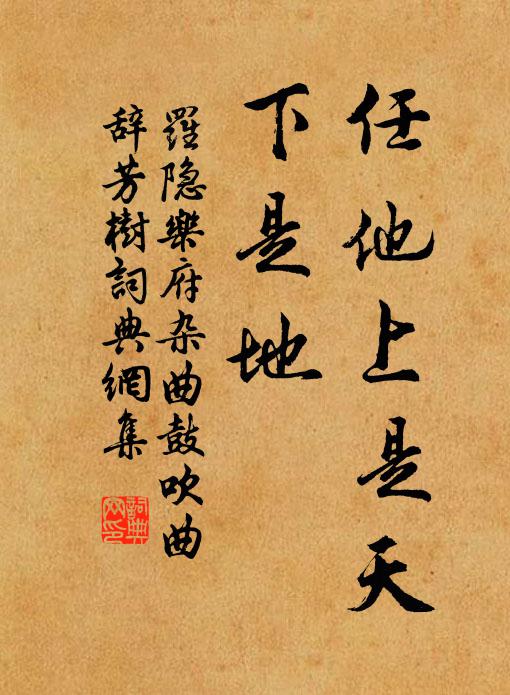 任他上是天
下是地
羅隐樂府杂曲鼓吹曲
辞芳樹詞典網集
詞典
网印